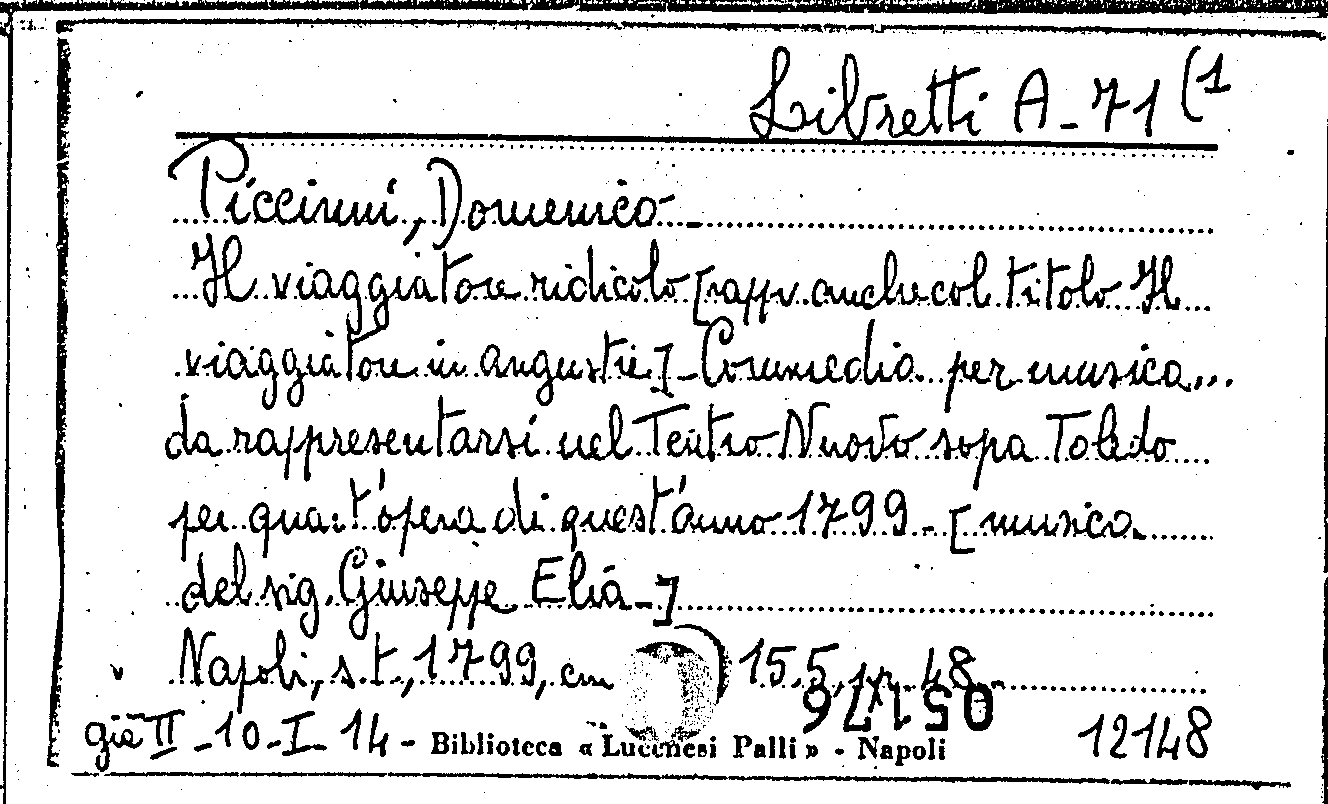 Libretti A-71 (1
Piccinni, Domenico-
Il viaggiatore ridicolo [rappr. anche col titolo Il
viaggiatore in angustie]-Commedia per musica...
da rappresentarsi nel Teatro Nuovo sopa Toledo
per quart'opera di quest'anno 1799-[musica
del sig. Giuseppe Elia-]
Napoli, s.t., 1799, cm 15.5, 48-
051776
già II-10-I-14- Biblioteca « Lucchesi Palli » - Napoli 12148